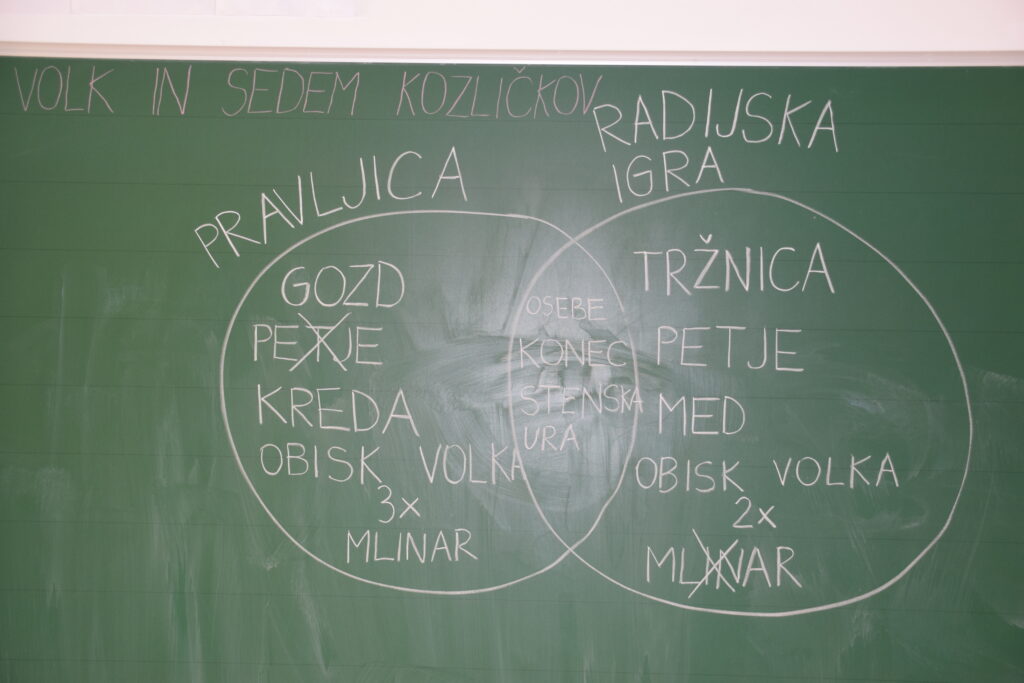 VOLK IN SEDEM KOZLIČKOV
PRAVLJICA
GOZD
PETJE
KREDA
OBISK VOLKA
3x
MLINAR
OSEBE
KONEC
STENSKA
URA
RADIJSKA
IGRA
TRŽNICA
PETJE
MED
OBISK VOLKA
2x
MLINAR